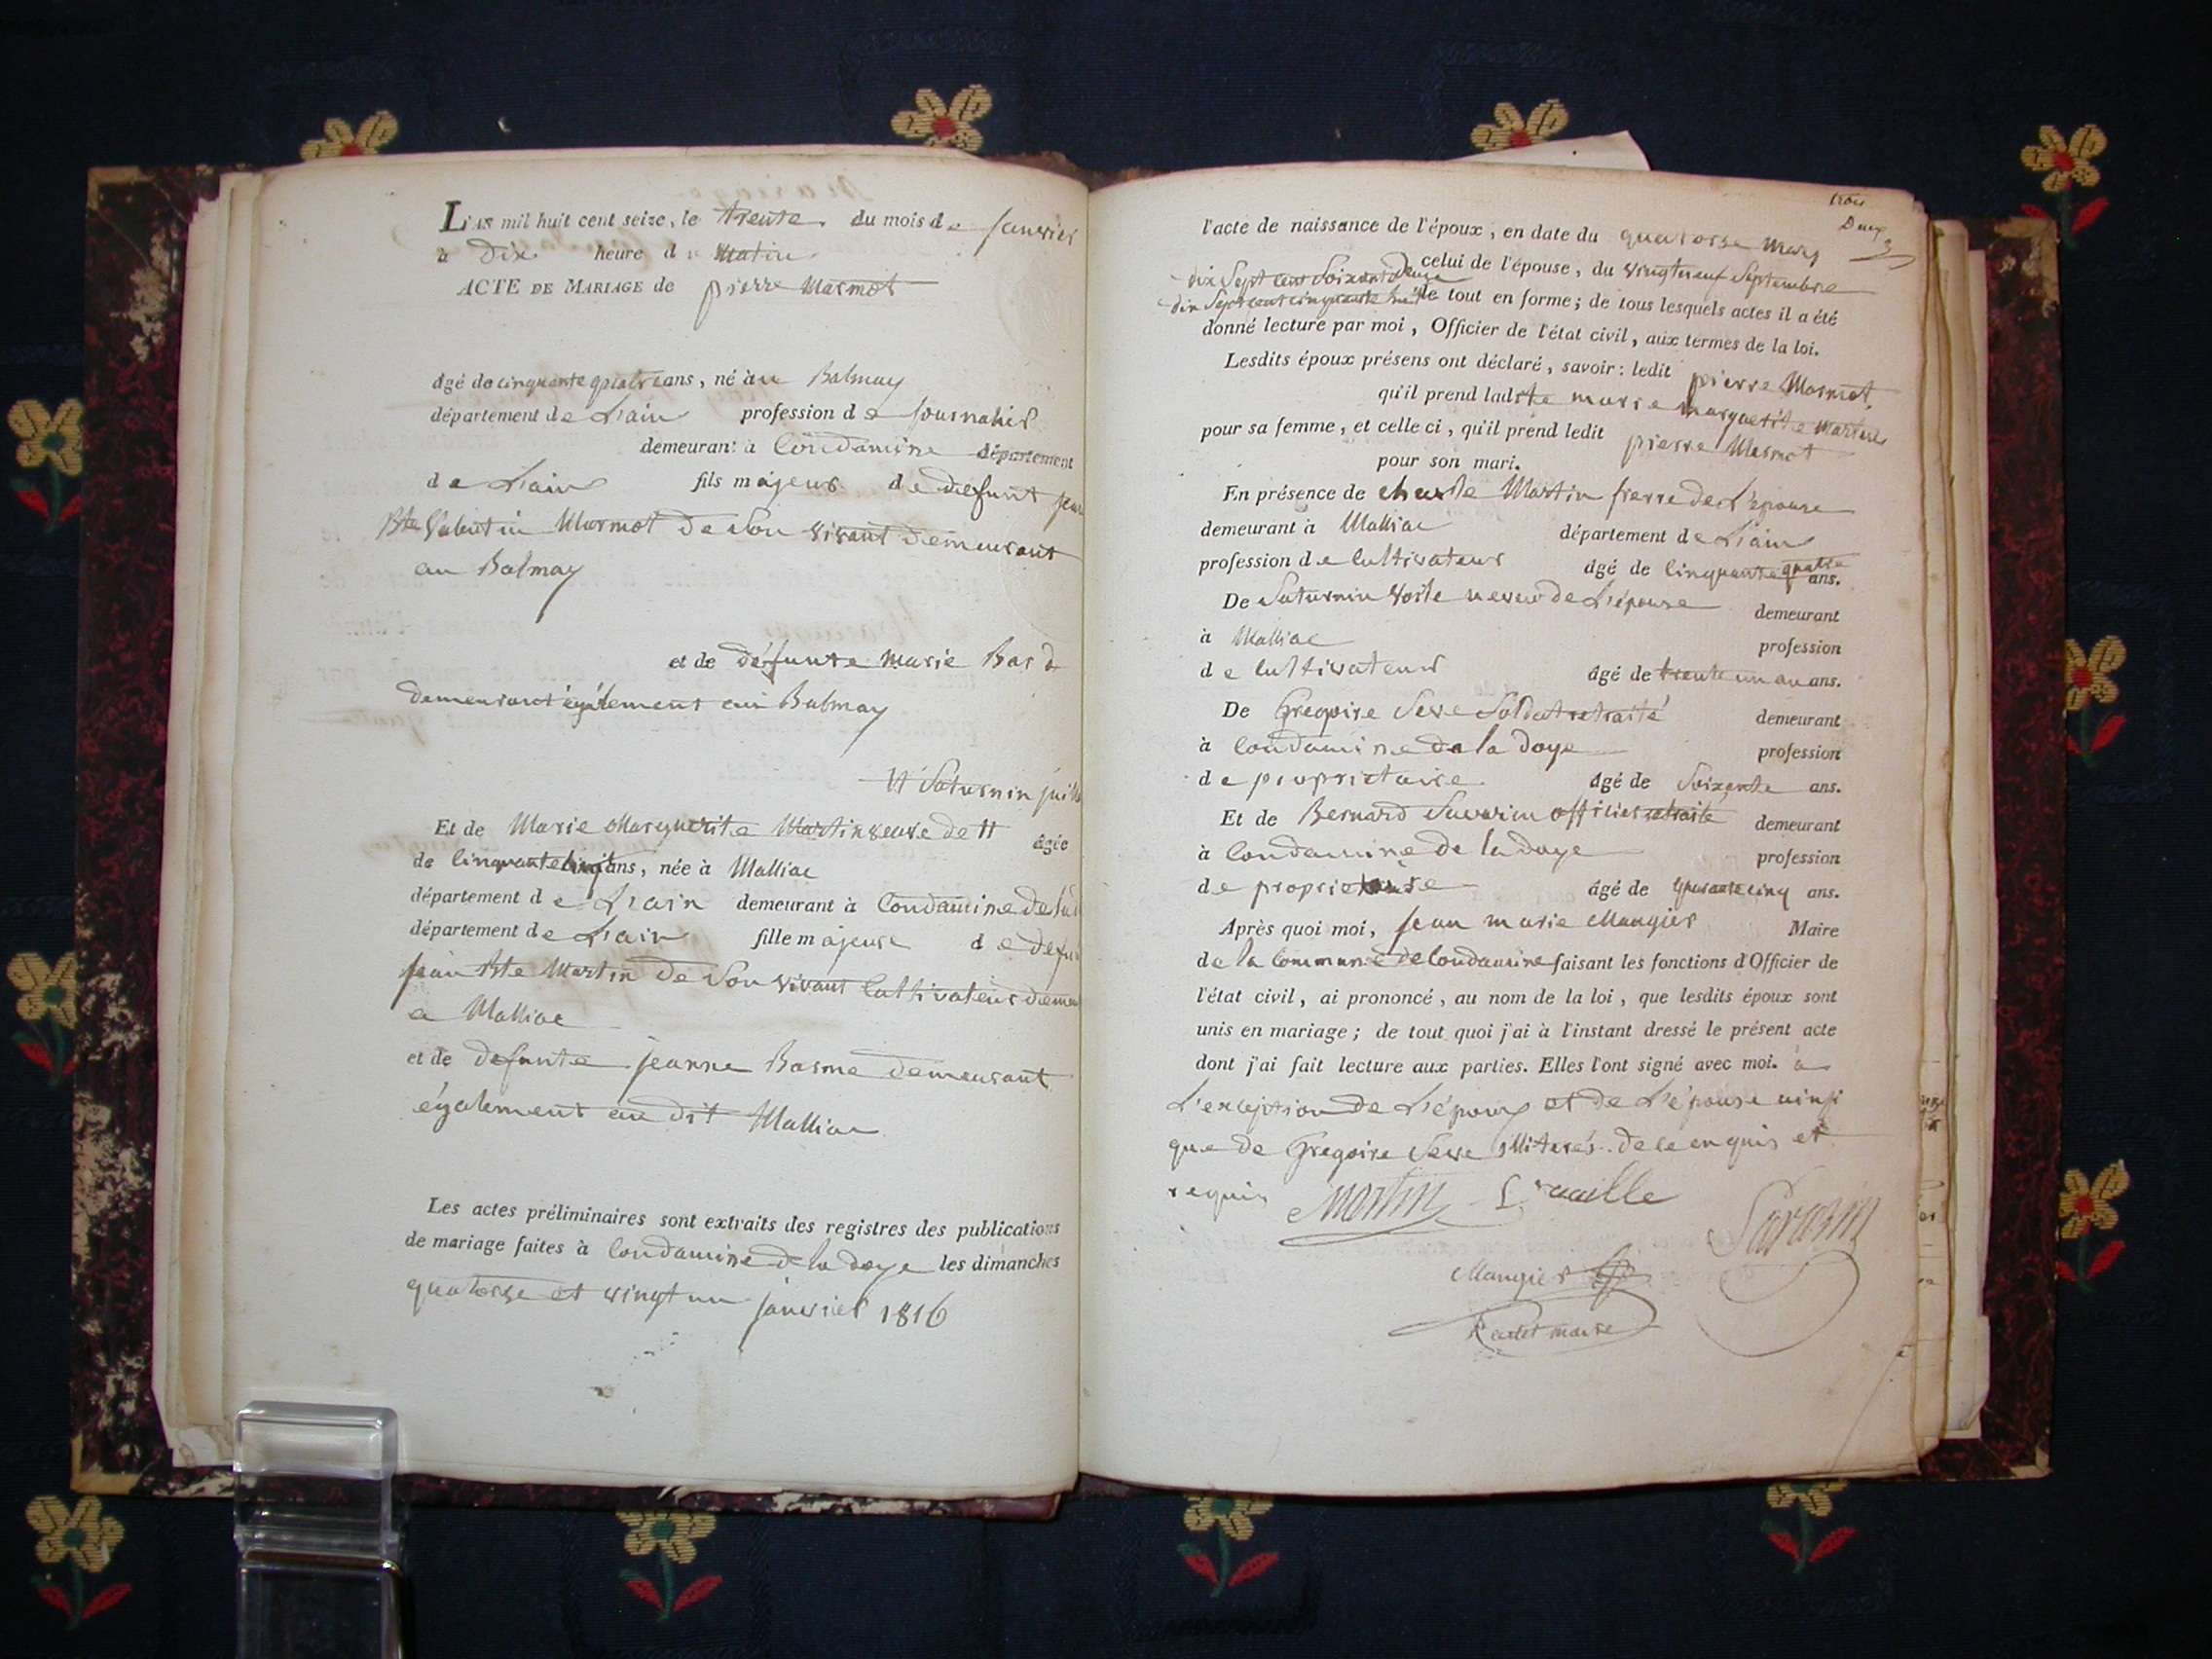 L'AN mil huit cent seize, le trente du mois de janvier
à Dix heure du matin
ACTE DE MARIAGE de pierre Marmot
âgé de cinquante quatre ans, né au Balmay
département de L'ain profession de journalier
demeurant à Condamine département
de L'ain fils majeur de defunt jean
Bte Valentin Marmot de son vivant demeurant
au Balmay
et de défunte marie
demeurant également au Balmay
Saturnin
Et de Marie Marguerite Martin veuve de âgée
de cinquante ans, née à Malliac
département de L'ain demeurant à Condamine de
département de L'ain fille majeure de
jean Bte Martin de son vivant cultivateur
a Malliac
et de defunte jeanne Basme demeurant
également au dit Malliac
Les actes préliminaires sont extraits des registres des publications
de mariage faites à Condamine de la doye les dimanches
quatorze et vingt un janvier 1816
trois
Deux
3
l'acte de naissance de l'époux, en date du quatorze mars
dix sept cent soixante deux celui de l'épouse, du vingt neuf septembre
dix sept cent cinquante huit le tout en forme; de tous lesquels actes il a été
donné lecture par moi, Officier de l'état civil, aux termes de la loi.
Lesdits époux présens ont déclaré, savoir: ledit pierre Marmot
qu'il prend ladite marie marguerite Martin
pour sa femme, et celle ci, qu'il prend ledit pierre Marmot
pour son mari.
En présence de Martin frerre de L'épouse
demeurant à Malliac département de L'ain
profession de cultivateur âgé de cinquante quatre ans.
De Saturnin neveu de L'épouse demeurant
à Malliac profession
de cultivateur âgé de trente un ans.
De Gregoire Seve Soldat retraité demeurant
à Condamine de la doye profession
de proprietaire âgé de Soixante ans.
Et de Bernard officier retraité demeurant
à Condamine de la doye profession
de proprietaire âgé de quarante cinq ans.
Après quoi moi, jean marie Maugier Maire
de la Commune de Condamine faisant les fonctions d'Officier de
l'état civil, ai prononcé, au nom de la loi, que lesdits époux sont
unis en mariage; de tout quoi j'ai à l'instant dressé le présent acte
dont j'ai fait lecture aux parties. Elles l'ont signé avec moi. à
L'exception de L'époux et de L'épouse ainsi
que de Gregoire Seve illiterés de ce enquis et
requis Martin
Savarin
Maugier
maire